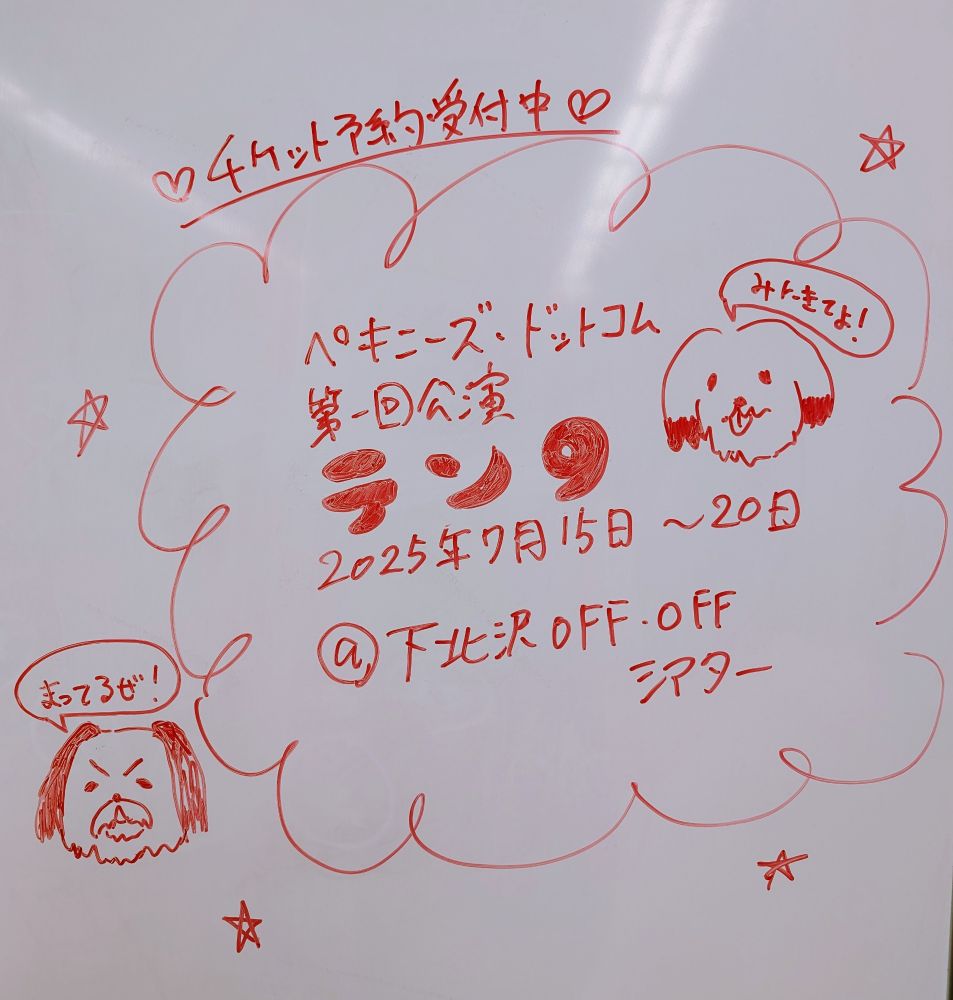 ♡チケット予約受付中♡
みにきてよ!
ペキニーズ・ドットコム
第一回公演
テン9
2025年7月15日～20日
@下北沢OFF・OFF
シアター
まってるぜ!